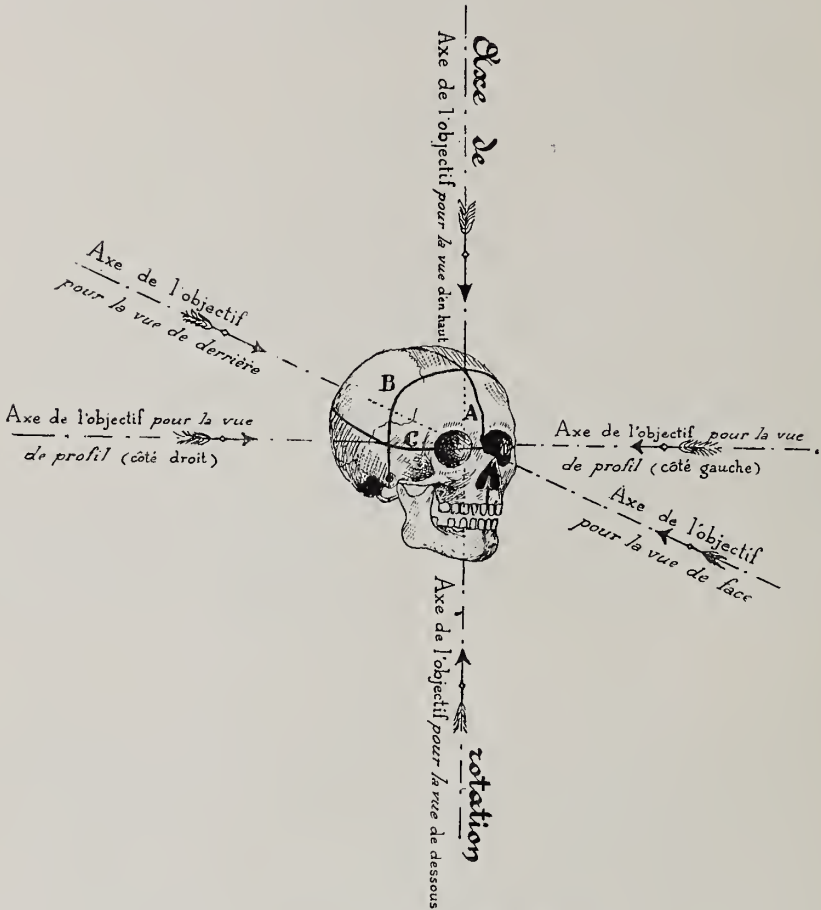 Axe de
Axe de l'objectif pour la vue d'en haut
Axe de l'objectif
pour la vue de derrière
B
A
C
Axe de l'objectif pour la vue
de profil (côté droit)
Axe de l'objectif pour la vue
de profil (côté gauche)
Axe de l'objectif
pour la vue de face
Axe de l'objectif pour la vue de dessous
rotation